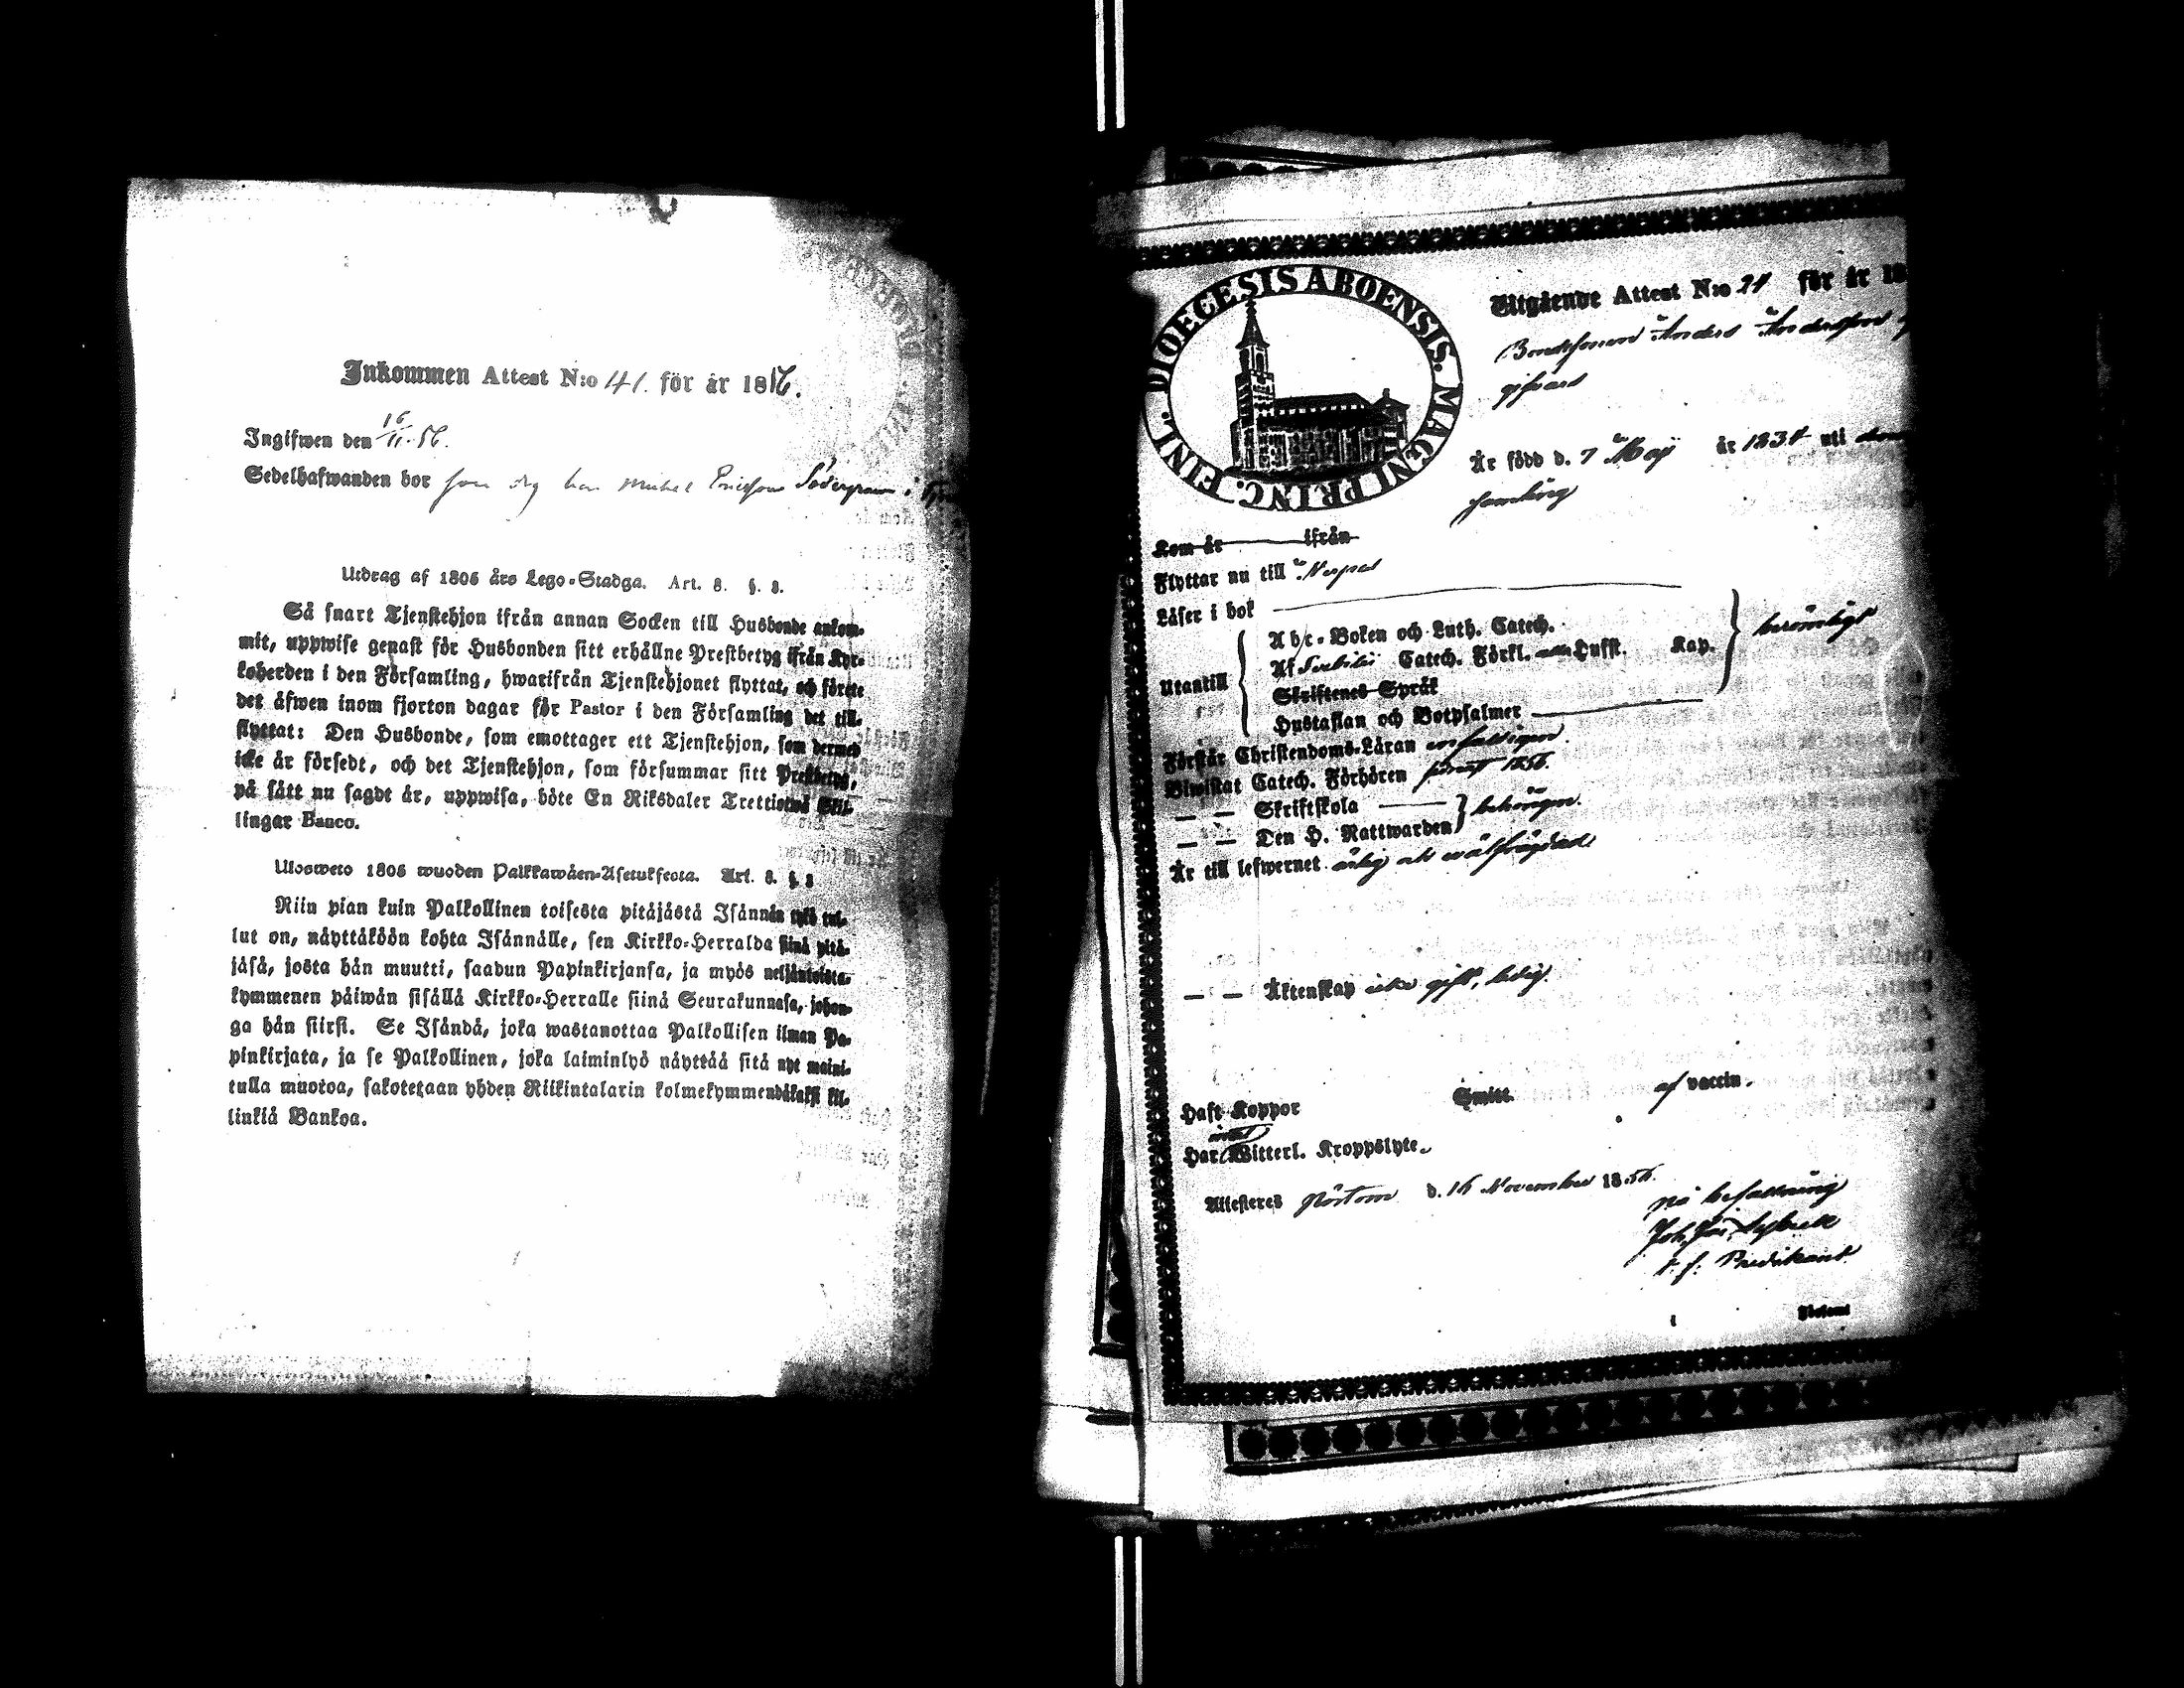 Inkommen Attest N:o 41. för år 1856.
Ingifwen den 16/11. 56.
Sedelhafwanden bor
Utdrag af 1805 års Lego-Stadga. Art. 8. §. 8.
Så snart Tjenstehjon ifrån annan Socken till Husbonde ankom-
mit, uppwise genast för Husbonden sitt erhållne Prestbetyg ifrån Kyr-
koherden i den Församling, hwarifrån Tjenstehjonet flyttat, och förete
det äfwen inom fjorton dagar för Pastor i den Församling det till-
flyttat: Den Husbonde, som emottager ett Tjenstehjon, som dermed
icke är försedt, och det Tjenstehjon, som försummar sitt Prestbetyg,
på sätt nu sagdt är, uppwisa, böte En Riksdaler Trettiotwå Skil-
lingar Banco.
Ulosweto 1805 wuoden Palkkawäen-Asetuksesta. Art. 8. §. 8
Niin pian kuin Palkollinen toisesta pitäjästä Isännän työ tul-
lut on, näyttäköön kohta Isännälle, sen Kirkko-Herralda siinä pitä-
jäsä, josta hän muutti, saadun Papinkirjansa, ja myös neljäntoista-
kymmenen päiwän sisällä Kirkko-Herralle siinä Seurakunnasa, johon-
ga hän siirsi. Se Isändä, joka wastanottaa Palkollisen ilman Pa-
pinkirjata, ja se Palkollinen, joka laiminlyö näyttää sitä nyt maini-
tulla muotoa, sakotetaan yhden Riikintalarin kolmekymmendäkaksi kil-
linkiä Bankoa.
DIOECESIS ABOENSIS. MAGNI PRINC. FINL.
Utgående Attest N:o 21 för år 18
Bondesonen Anders Andersson
Är född d. 7 Maji år 1834 uti denna
församling
Kom år ifrån
Flyttar nu till Nerpes
Läser i bok
Utantill
Abc-Boken och Luth. Catech.
Af Svebilii Catech. Förkl. Hufst. Kap.
berömligt
Skriftenes Språk
Hustaflan och Botpsalmer
Förstår Christendoms-Läran enfaldigen.
Biwistat Catech. Förhören sednast 1856.
— — Skriftskola
— — Den H. Nattwarden behörigen.
Är till lefwernet ärlig och wälfrägdad.
— — Äktenskap icke gift, ledig.
Haft Koppor Smitt. af vaccin.
Har intet Witterl. Kroppslyte.
Attesteres Pörtom d. 16 November 1856.
på befallning
t. f. Predikant.